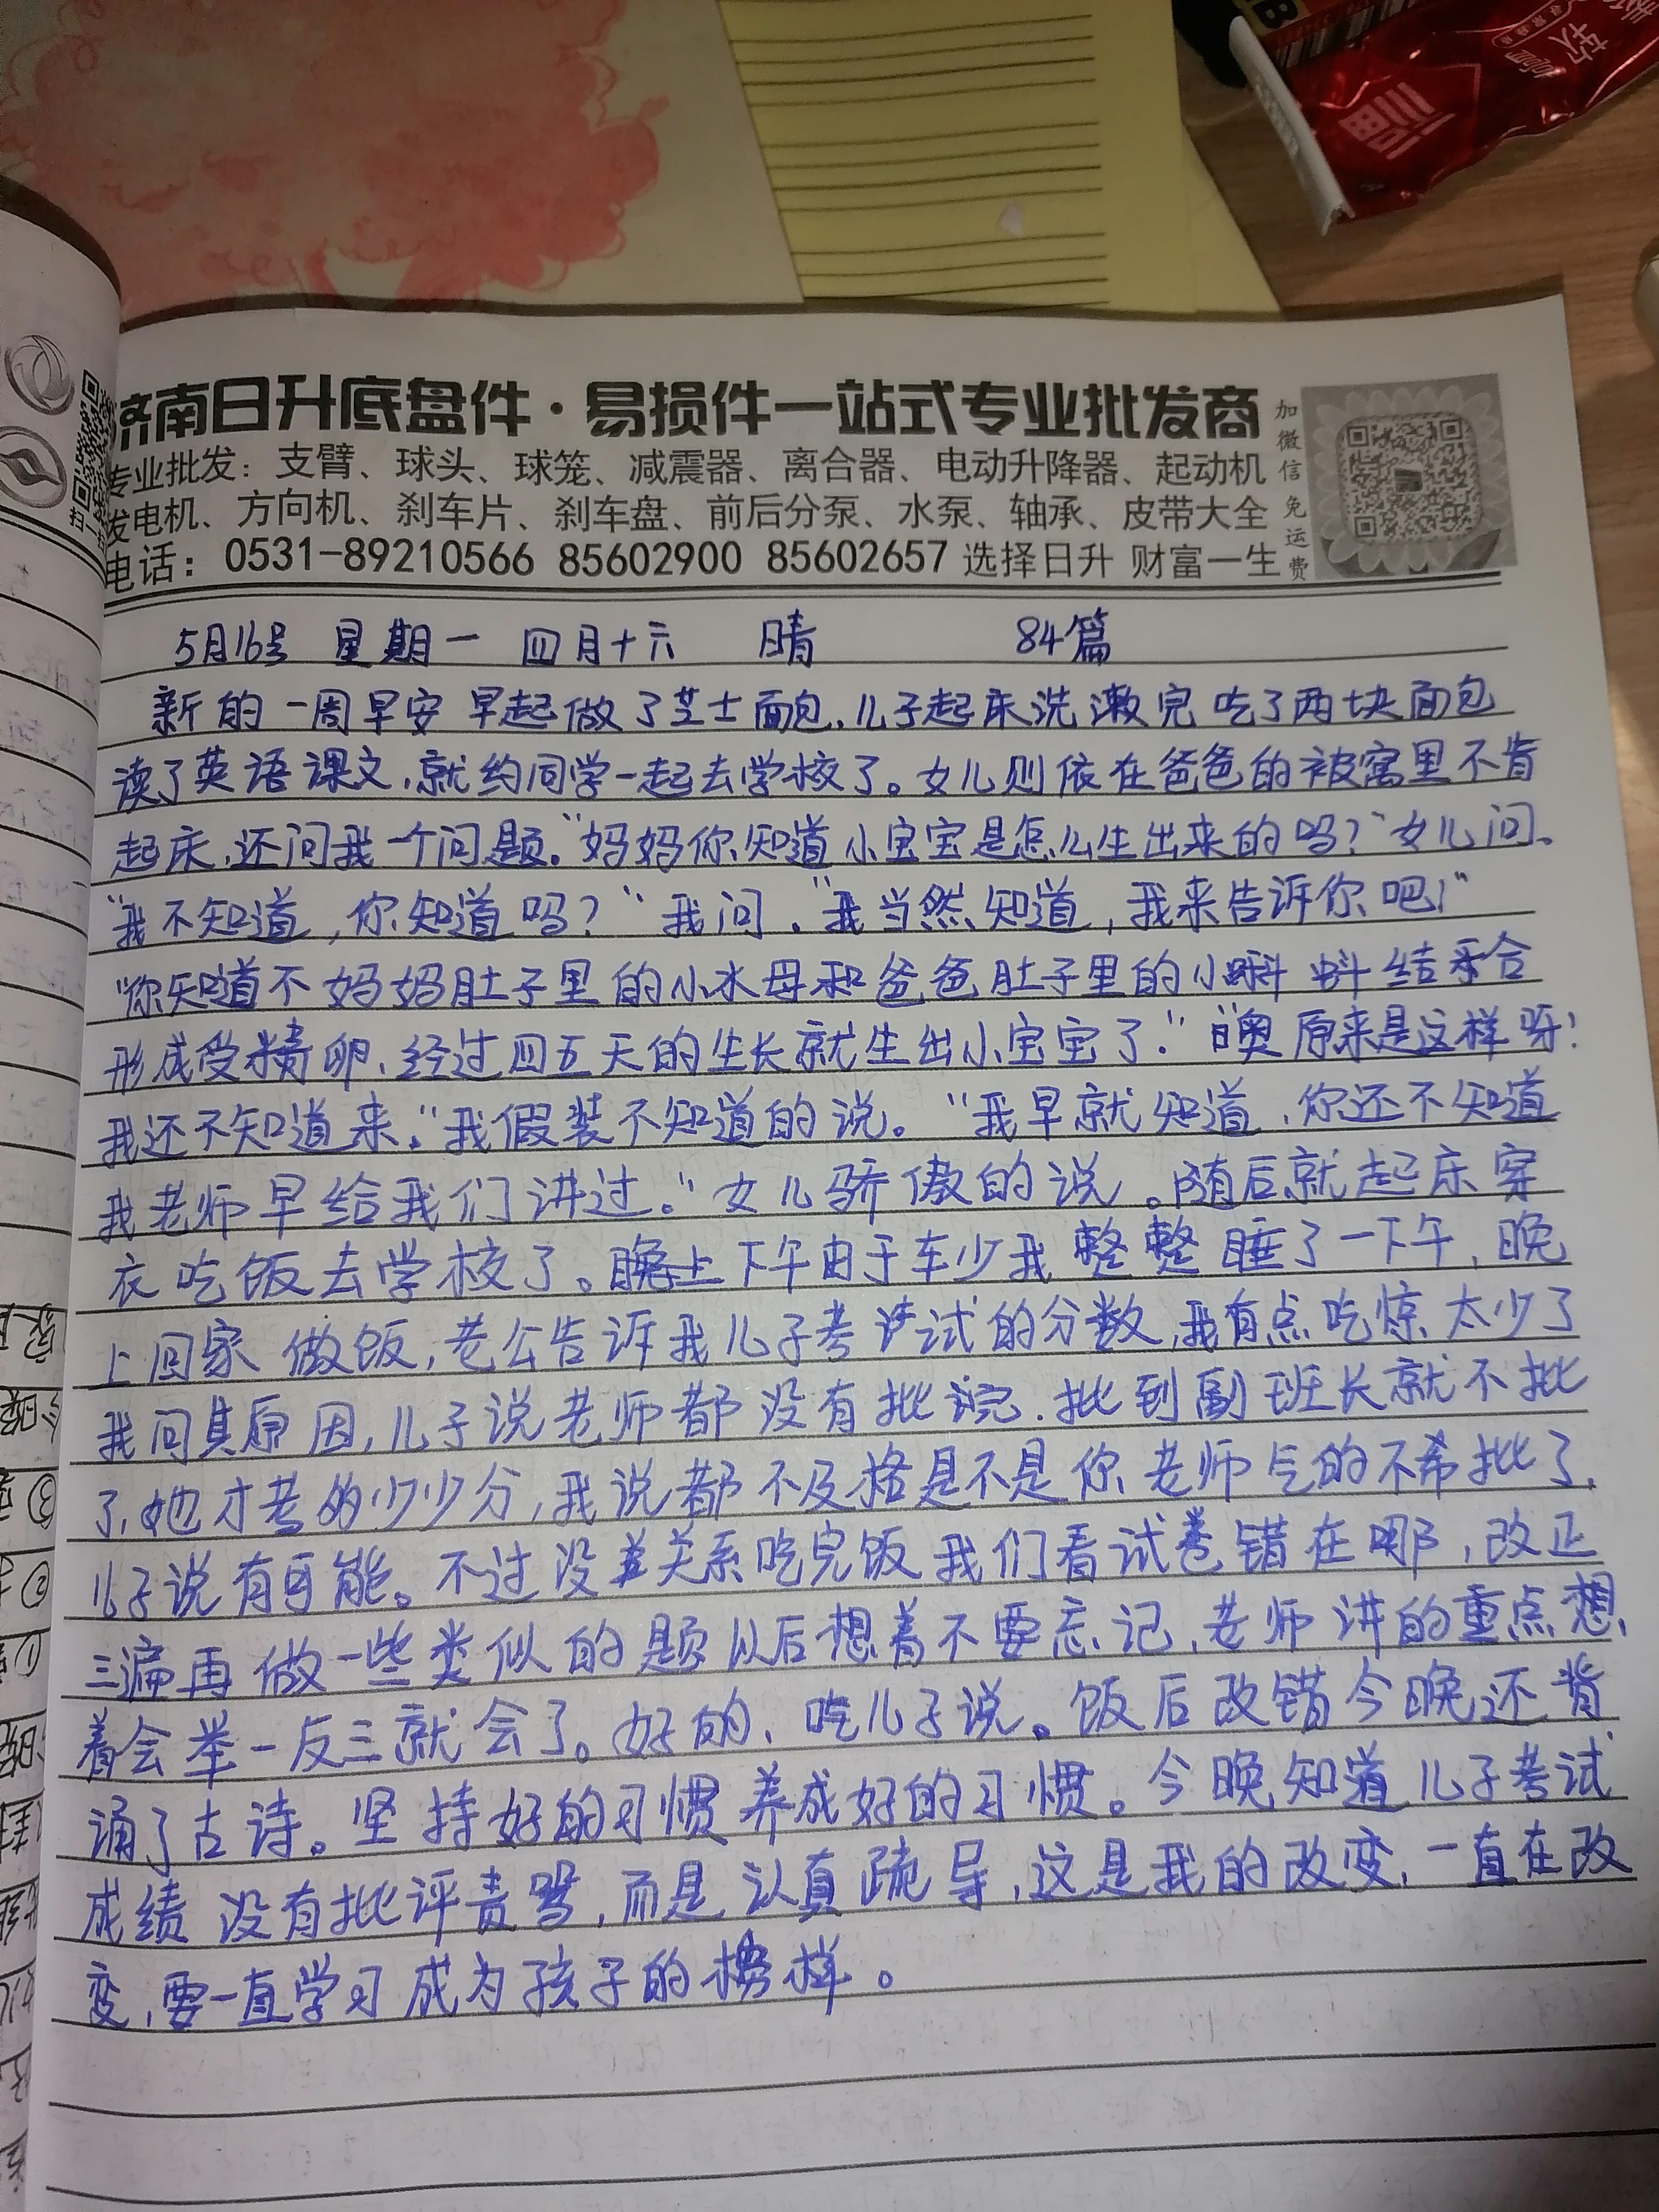 济南日升底盘件·易损件一站式专业批发商
专业批发：支臂、球头、球笼、减震器、离合器、电动升降器、起动机
发电机、方向机、刹车片、刹车盘、前后分泵、水泵、轴承、皮带大全
电话：0531-89210566 85602900 85602657 选择日升 财富一生
加微信免运费
5月16号 星期一 四月十六 晴 84篇
新的一周早安 早起做了芝士面包,儿子起床洗漱完 吃了两块面包
读了英语课文,就约同学一起去学校了。女儿则依在爸爸的被窝里不肯
起床,还问我一个问题。"妈妈你知道小宝宝是怎么生出来的吗?"女儿问。
"我不知道,你知道吗?"我问。"我当然知道,我来告诉你吧!"
"你知道不妈妈肚子里的小水母和爸爸肚子里的小蝌蚪结合
形成受精卵,经过四五天的生长就生出小宝宝了。""噢原来是这样呀!
我还不知道来。"我假装不知道的说。"我早就知道,你还不知道
我老师早给我们讲过。"女儿骄傲的说。随后就起床穿
衣吃饭去学校了。下午由于车少我整整睡了一下午,晚
上回家做饭,老公告诉我儿子考试的分数,我有点吃惊太少了
我问其原因,儿子说老师都没有批完.批到副班长就不批
了,她才考的少少分,我说都不及格是不是你老师气的不希批了,
儿子说有可能。不过没关系吃完饭我们看试卷错在哪,改正
三遍再做一些类似的题以后想着不要忘记,老师讲的重点想
着会举一反三就会了。好的、吃儿子说。饭后改错今晚还背
诵了古诗。坚持好的习惯养成好的习惯。今晚知道儿子考试
成绩没有批评责骂,而是认真疏导,这是我的改变,一直在改
变,要一直学习成为孩子的榜样。